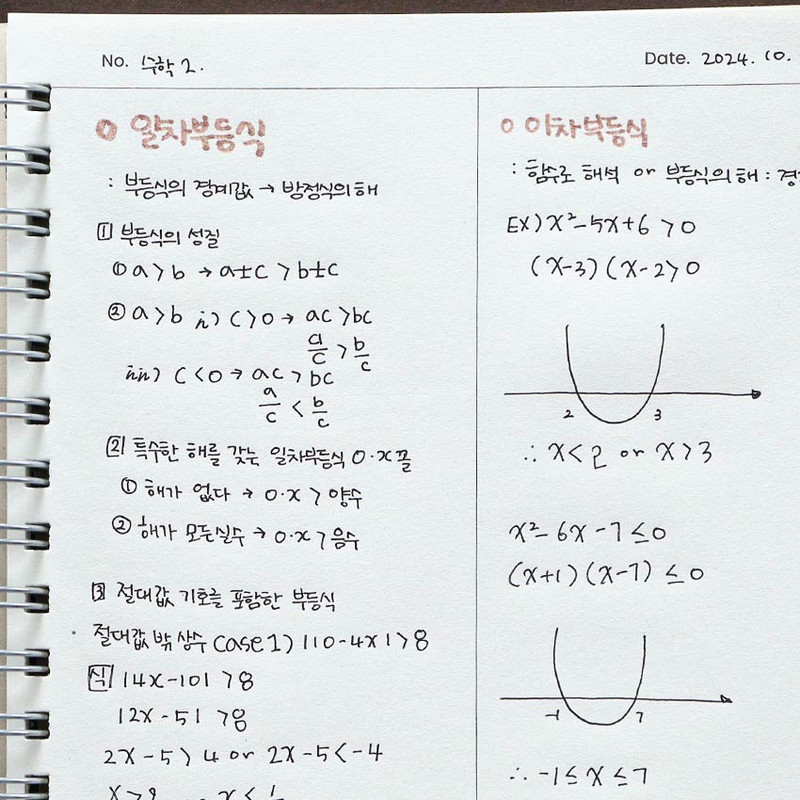 No. 수학 2.
Date. 2024. 10.
○ 일차부등식
: 부등식의 경계값 → 방정식의 해
1 부등식의 성질
① a > b → a±c > b±c
② a > b i) c > 0 → ac > bc
a/c > b/c
ii) c < 0 → ac > bc
a/c < b/c
2 특수한 해를 갖는 일차부등식 0·x꼴
① 해가 없다 → 0·x > 양수
② 해가 모든실수 → 0·x > 음수
3 절대값 기호를 포함한 부등식
· 절대값 밖 상수 case 1) |10-4x| > 8
식 |4x-10| > 8
|2x-5| > 8
2x-5 > 4 or 2x-5 < -4
○ 이차부등식
: 함수로 해석 or 부등식의 해 :
EX) x²-5x+6 > 0
(x-3)(x-2 > 0
2 3
∴ x < 2 or x > 3
x²-6x-7 ≤ 0
(x+1)(x-7) ≤ 0
-1 7
∴ -1 ≤ x ≤ 7